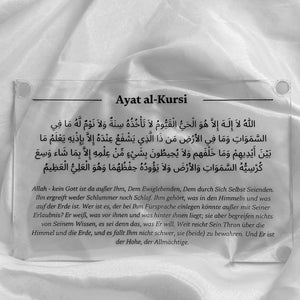 Ayat al-Kursi
اللهُ لاَ إِلَـهَ إِلاَّ هُوَ الْحَيُّ الْقَيُّومُ لاَ تَأْخُذُهُ سِنَةٌ وَلاَ نَوْمٌ لَّهُ مَا فِي
السَّمَوَاتِ وَمَا فِي الأَرْضِ مَنْ ذَا الَّذِي يَشْفَعُ عِنْدَهُ إِلاَّ بِإِذْنِهِ يَعْلَمُ مَا
بَيْنَ أَيْدِيهِمْ وَمَا خَلْفَهُم وَلاَ يُحِيطُونَ بِشَيْءٍ مِّنْ عِلْمِهِ إِلاَّ بِمَا شَاءَ وَسِعَ
كُرْسِيُّهُ السَّمَوَاتِ وَالأَرْضَ وَلاَ يَؤُودُهُ حِفْظُهُمَا وَهُوَ الْعَلِيُّ الْعَظِيمُ
Allah - kein Gott ist da außer Ihm, Dem Ewiglebenden, Dem durch Sich Selbst Seienden.
Ihn ergreift weder Schlummer noch Schlaf. Ihm gehört, was in den Himmeln und was
auf der Erde ist. Wer ist es, der bei Ihm Fürsprache einlegen könnte außer mit Seiner
Erlaubnis? Er weiß, was vor ihnen und was hinter ihnen liegt; sie aber begreifen nichts
von Seinem Wissen, es sei denn das, was Er will. Weit reicht Sein Thron über die
Himmel und die Erde, und es fällt Ihm nicht schwer, sie (beide) zu bewahren. Und Er ist
der Hohe, der Allmächtige.